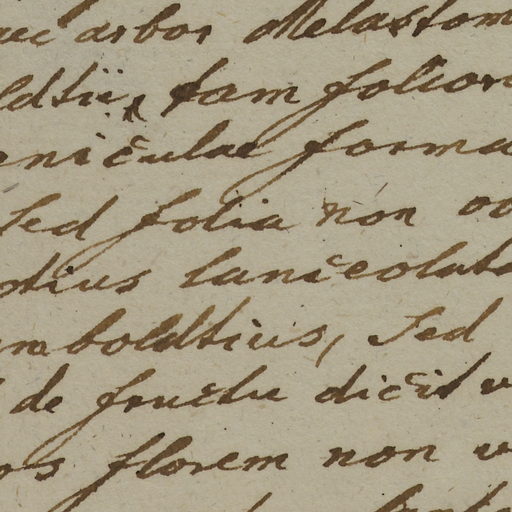 arbor Melastom
ldtii, tam folior
niculae forma
sed folia non
tius lanceolata
mboldtius, sed
de fructu dicit v
rs florem non v